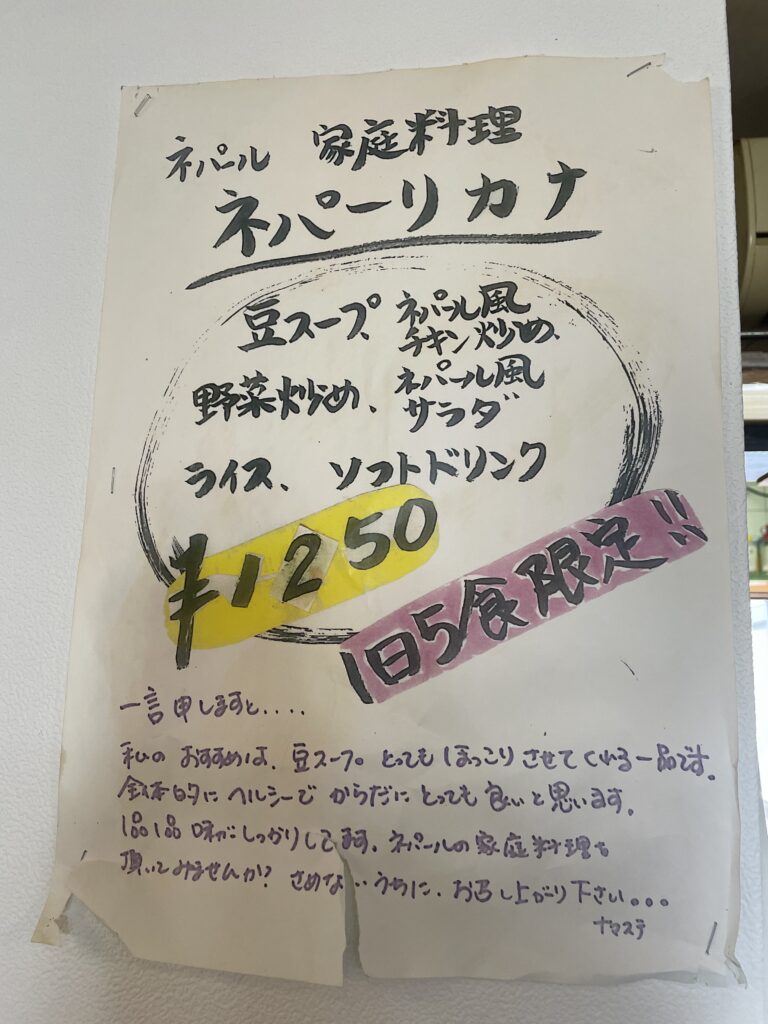 ネパール 家庭料理
ネパーリカナ
豆スープ、ネパール風チキン炒め、
野菜炒め、ネパール風サラダ
ライス、ソフトドリンク
¥1250
1日5食限定!!
一言申しますと....
私のおすすめは、豆スープ。とってもほっこりさせてくれる一品です。
全体的にヘルシーでからだにとっても良いと思います。
1品1品味がしっかりしてます。ネパールの家庭料理を
頂いてみませんか? さめな うちに、お召し上がり下さい。。。
ナマステ